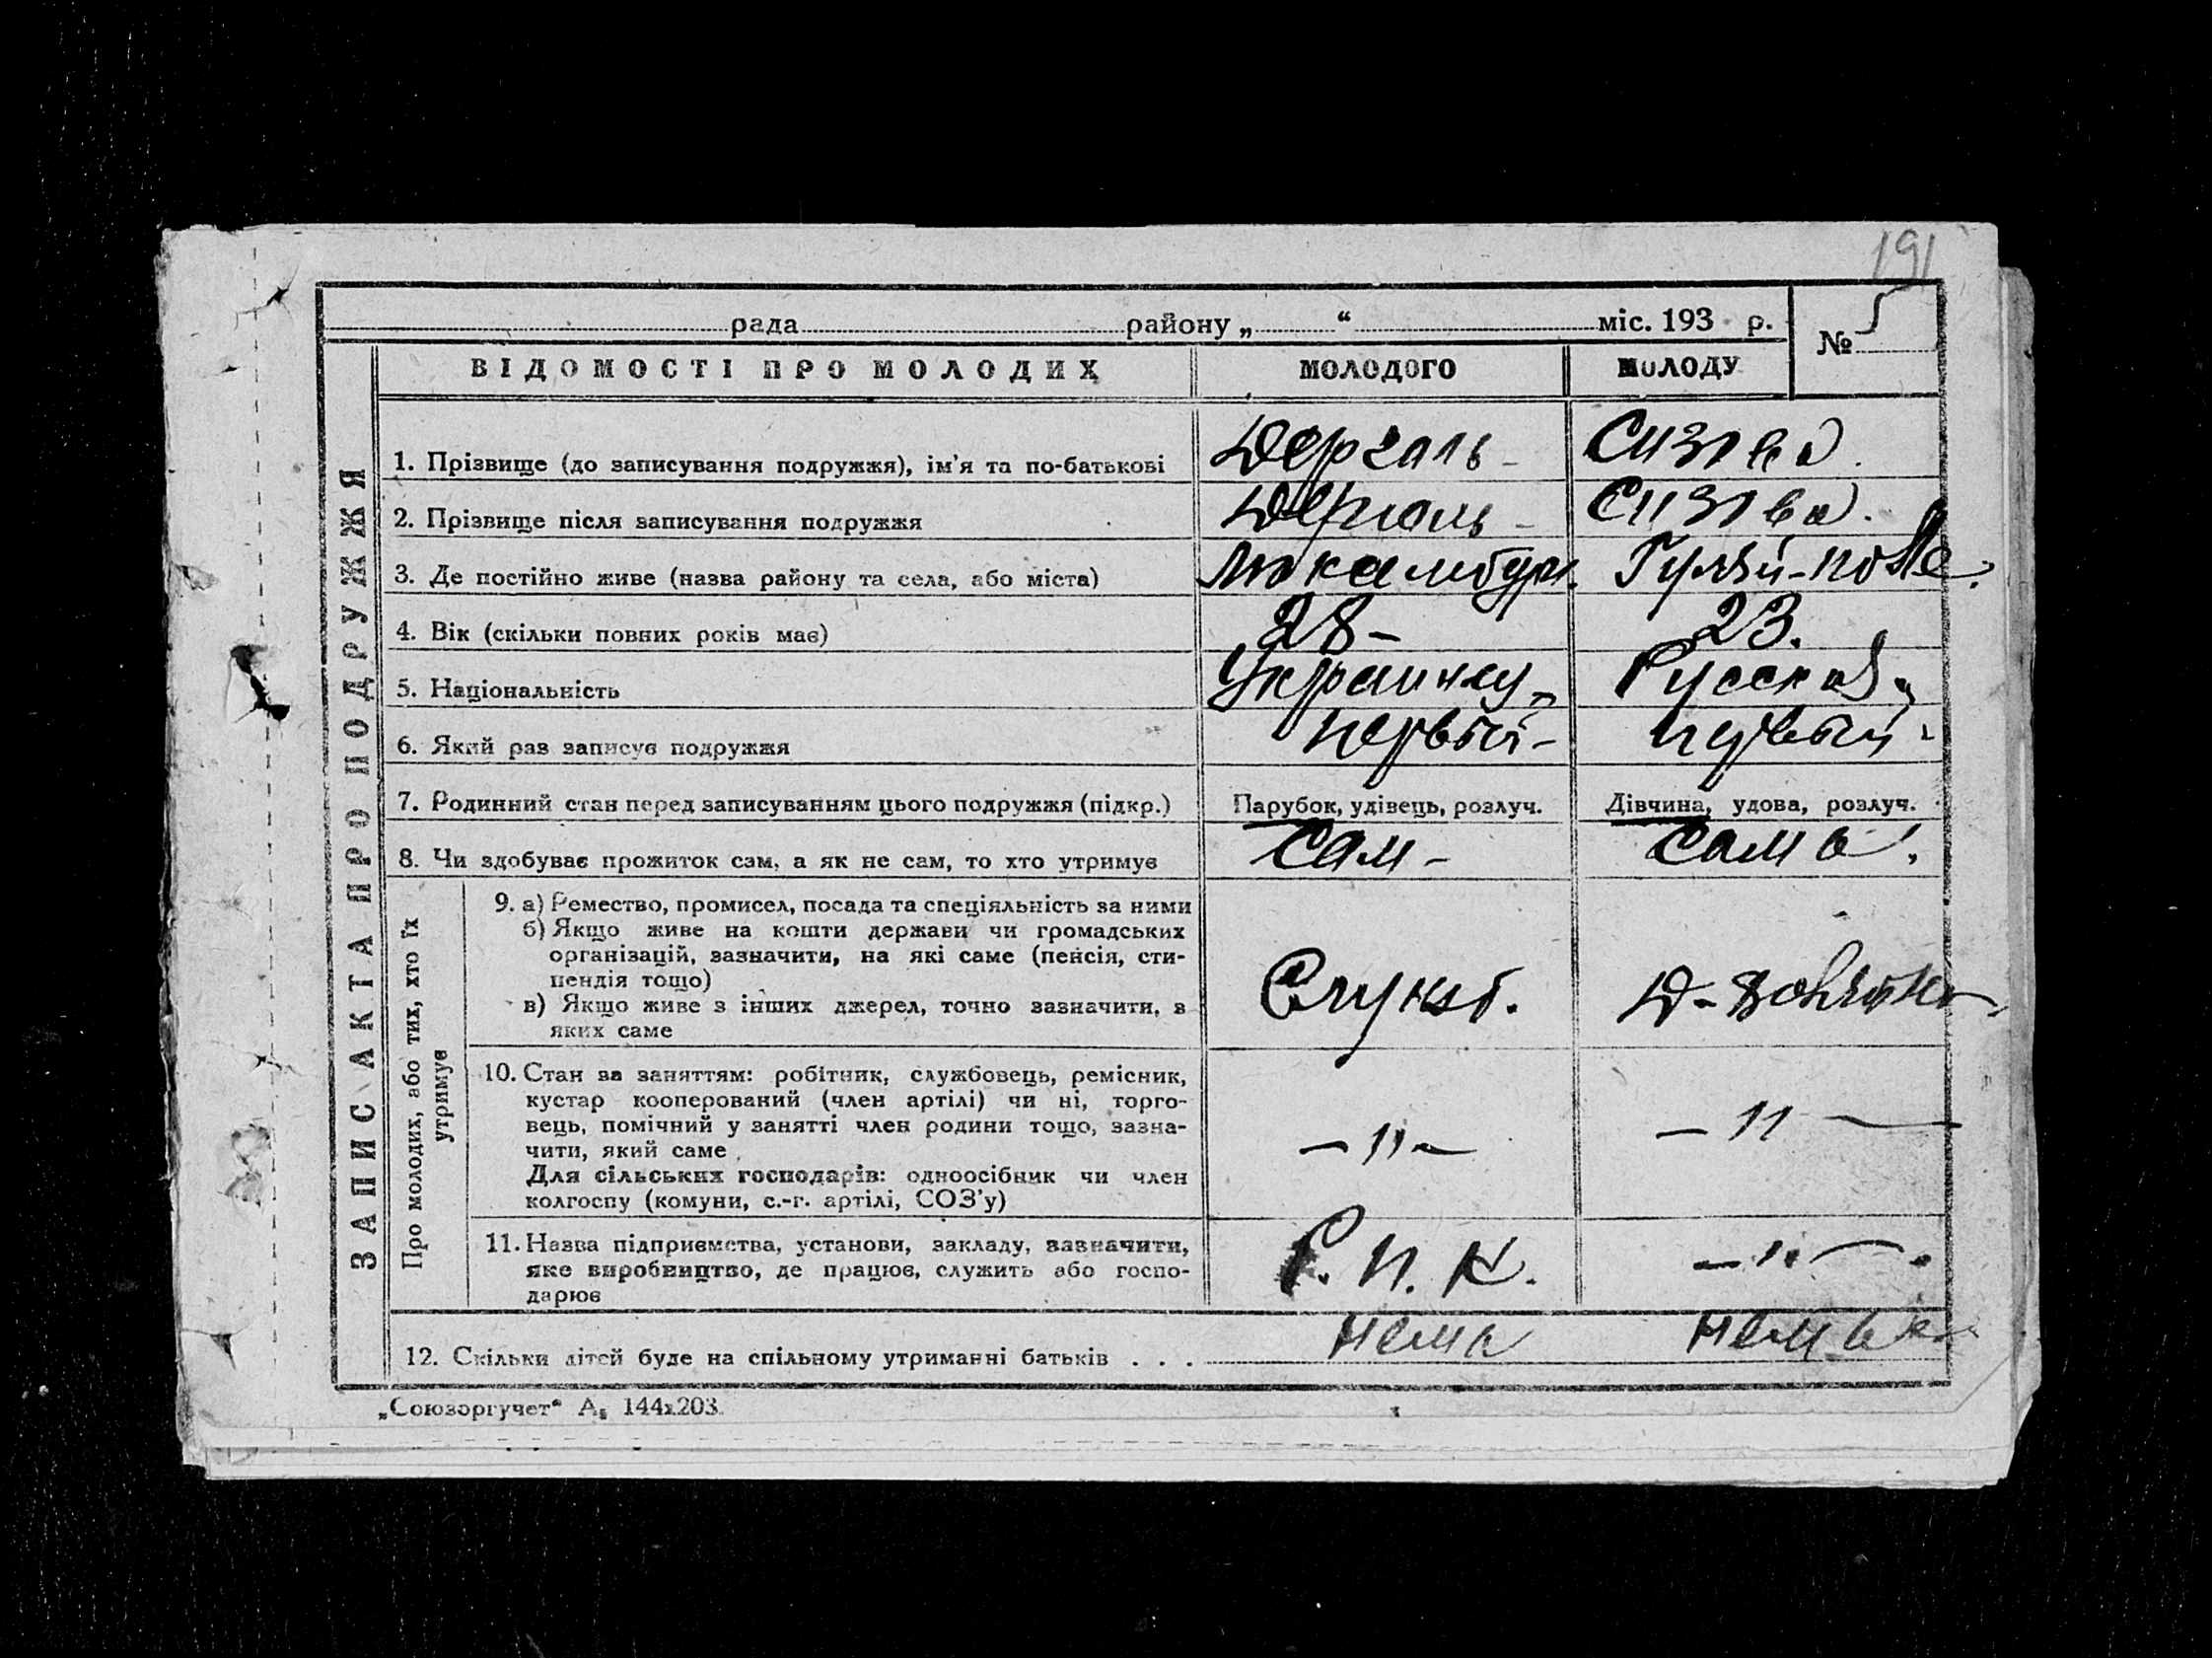 191
рада района „ “ міс. 193 р.
№ 5
ВІДОМОСТІ ПРО МОЛОДИХ МОЛОДОГО МОЛОДУ
ЗАПИС АКТА ПРО ПОДРУЖЖЯ
1. Прізвище (до записування подружжя), ім’я та по-батькові Сизова.
2. Прізвище після записування подружжя Сизова.
3. Де постійно живе (назва району та села, або міста) Гуляй-поле.
4. Вік (скільки повних років має) 28- 23.
5. Національність Русская
6. Який раз записує подружжя первый- первый-
7. Родинний стан перед записуванням цього подружжя (підкр.) Парубок, удівець, розлуч. Дівчина, удова, розлуч.
8. Чи здобуває прожиток сам, а як не сам, то хто утримує сам- сама.
Про молодих, або тих, хто їх
утримує
9. а) Ремество, промисел, посада та спеціяльність за ними
б) Якщо живе на кошти держави чи громадських
організацій, зазначити, на які саме (пенсія, сти-
пендія тощо)
в) Якщо живе з інших джерел, точно зазначити, з
яких саме
Служб.
10. Стан за заняттям: робітник, службовець, ремісник,
кустар кооперований (член артілі) чи ні, торго-
вець, помічний у занятті член родини тощо, зазна-
чити, який саме
Для сільських господарів: одноосібник чи член
колгоспу (комуни, с.-г. артілі, СОЗ’у)
-"- -"-
11. Назва підприємства, установи, закладу, зазначити,
яке виробництво, де працює, служить або госпо-
дарює
-"-
12. Скільки дітей буде на спільному утриманні батьків . . . нема нема
„Союзоргучет“ А₅ 144х203